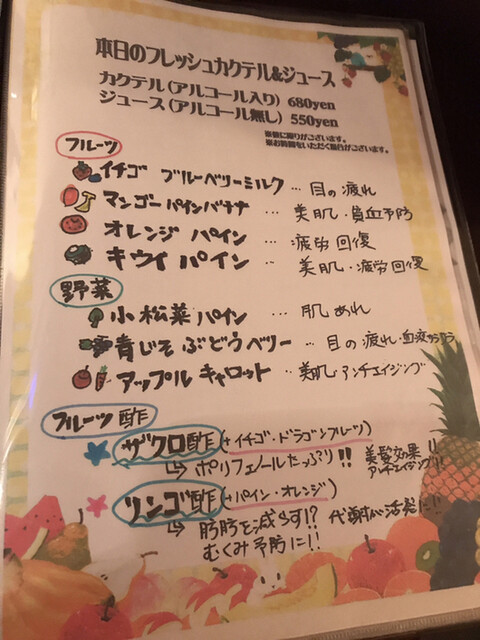 本日のフレッシュカクテル&ジュース
カクテル(アルコール入り) 680yen
ジュース(アルコール無し) 550yen
※数に限りがございます。
※お時間をいただく場合がございます。
フルーツ
イチゴ ブルーベリーミルク … 目の疲れ
マンゴーパインバナナ … 美肌・貧血予防
オレンジ パイン … 疲労回復
キウイ パイン … 美肌・疲労回復
野菜
小松菜パイン … 肌あれ
青じそぶどうベリー … 目の疲れ・血液サラサラ
アップル キャロット … 美肌アンチエイジング
フルーツ酢
ザクロ酢(+イチゴ・ドラゴンフルーツ)
→ ポリフェノールたっぷり!! 美髪効果!!
アンチエイジング!!
リンゴ酢(+パイン・オレンジ)
→ 脂肪を減らす!? 代謝が活発に!!
むくみ予防に!!